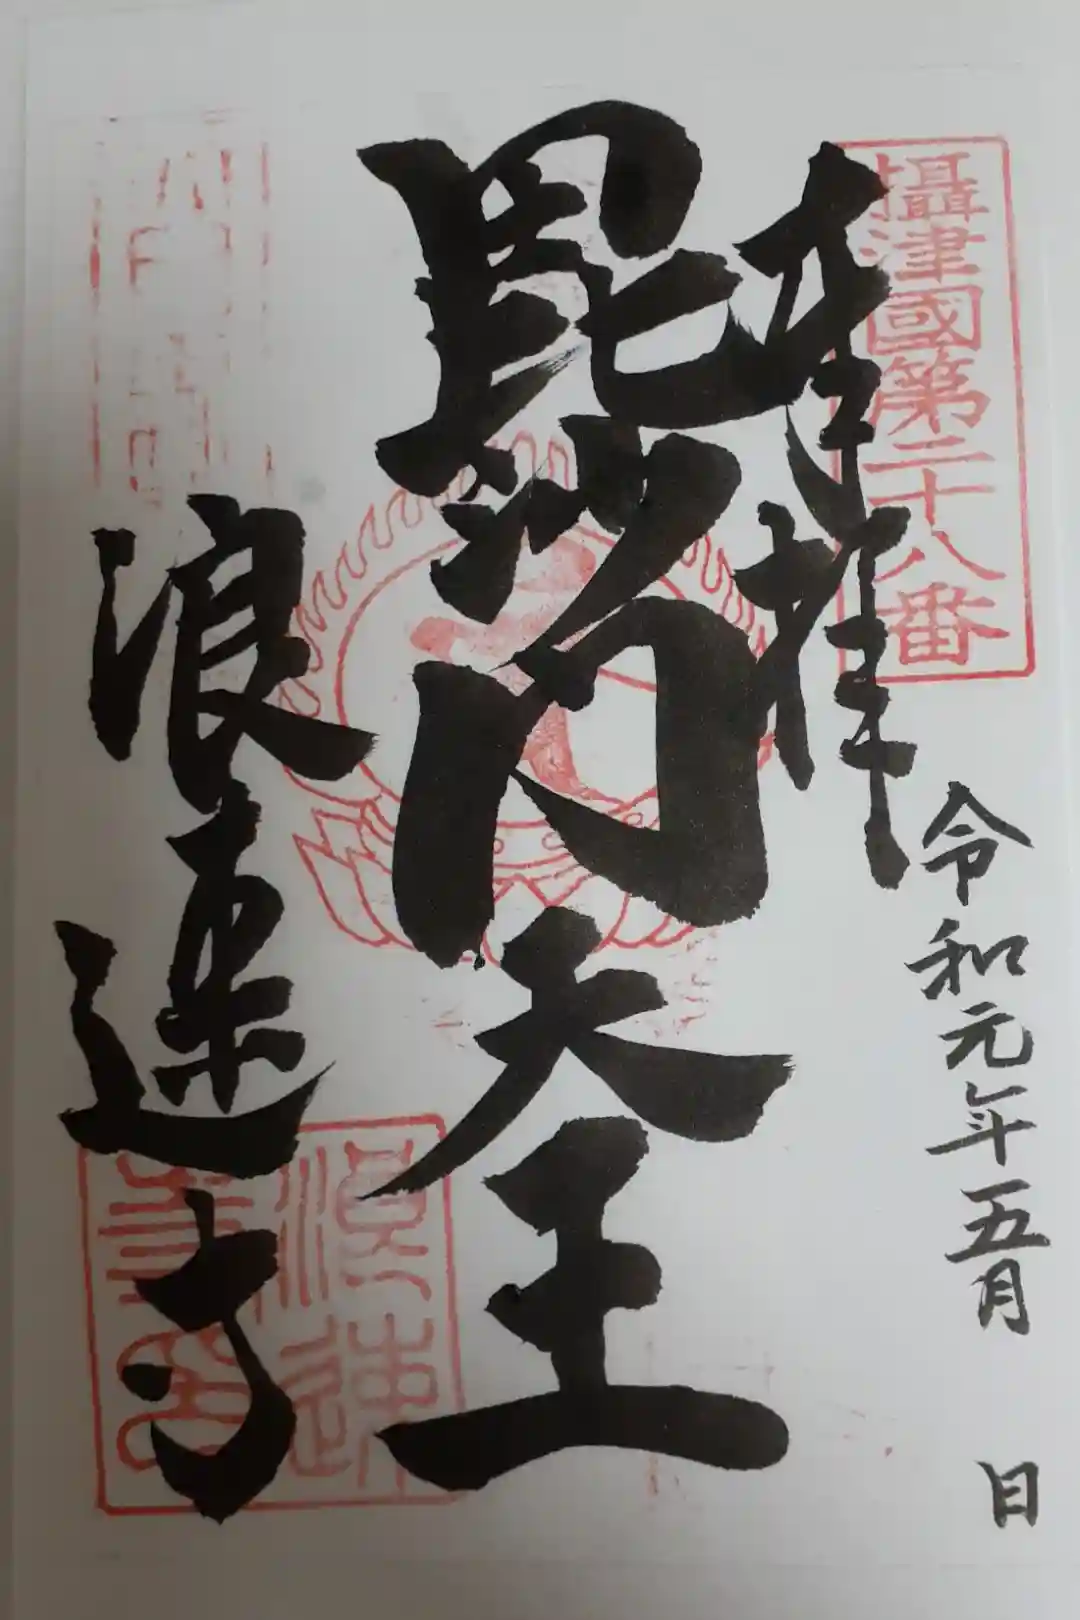 攝津國第二十八番
奉拝
令和元年五月 日
毘沙門天王
浪速寺
浪速
寺印